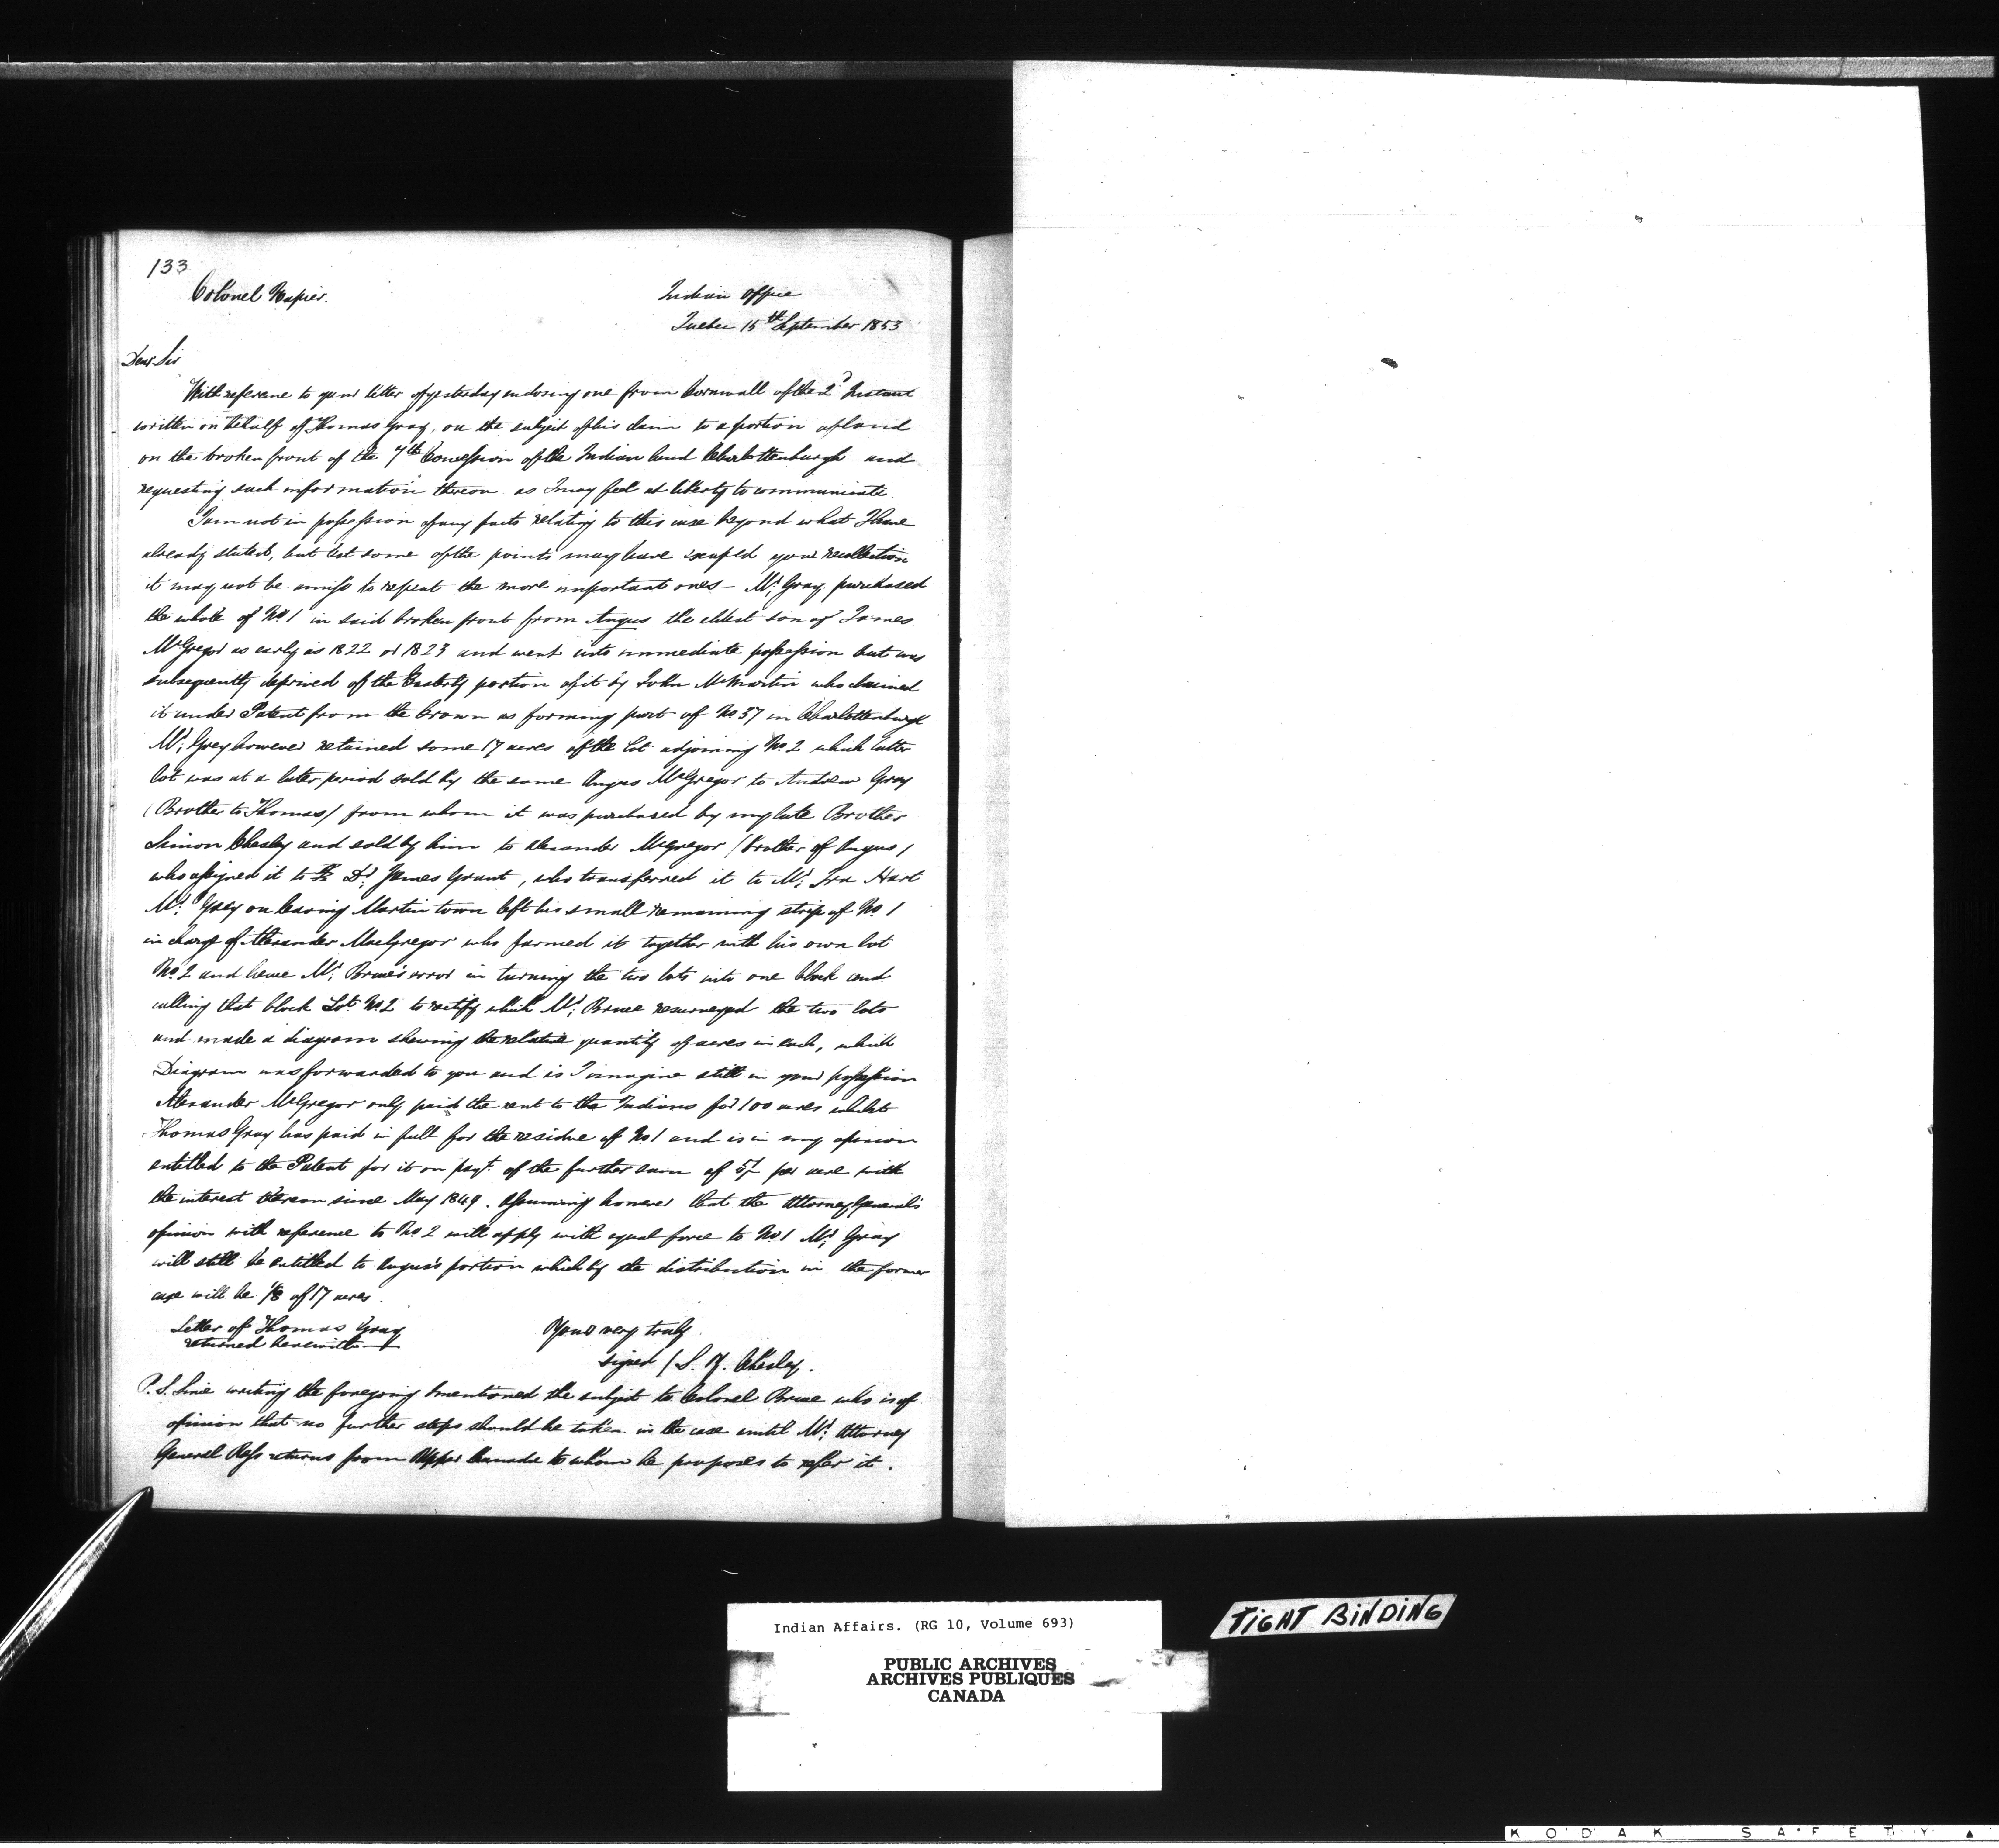 133
Colonel Napier.
Indian Office
Quebec 15th September 1853
Dear Sir
With reference to your letter of yesterday enclosing one from Cornwall of the 2d Instant
written on behalf of Thomas Gray, on the subject of his claim to a portion of land
on the broken front of the 7th Concession of the Indian land Charlottenburgh and
requesting such information thereon as I may feel at liberty to communicate.
I am not in possession of any facts relating to this case beyond what I have
already stated, but lest some of the points may have escaped your recollection
it may not be amiss to repeat the more important ones - Mr. Gray purchased
the whole of No. 1 in said broken front from Angus the eldest son of James
McGregor as early as 1822 or 1823 and went into immediate possession but was
subsequently deprived of the Easterly portion of it by John McMartin who claimed
it under Patent from the Crown as forming part of No 37 in Charlottenburgh
Mr. Grey however retained some 17 acres of the lot adjoining No. 2 which latter
lot was at a later period sold by the same Angus McGregor to Andrew Gray
(Brother to Thomas) from whom it was purchased by my late Brother
Simon Chesley and sold by him to Alexander McGregor (brother of Angus)
who assigned it to Dr. James Grant, who transferred it to Mr. Ira Hart
Mr. Grey on leaving Martintown left his small remaining strip of No. 1
in charge of Alexander MacGregor who farmed it together with his own lot
No. 2 and hence Mr. Bruce's error in turning the two lots into one block and
calling that block Lot No. 2 to rectify which Mr. Bruce resurveyed the two lots
and made a diagram shewing the relative quantity of acres in each, which
Diagram was forwarded to you and is I imagine still in your possession
Alexander McGregor only paid the rent to the Indians for 100 acres whilst
Thomas Gray has paid in full for the residue of No 1 and is in my opinion
entitled to the Patent for it on payt. of the further sum of 5/ per acre with
the interest thereon since May 1849. Assuming however that the Attorney General's
opinion with reference to No 2 will apply with equal force to No 1 Mr. Gray
will still be entitled to Angus's portion which by the distribution in the former
case will be 1/8 of 17 acres.
Letter of Thomas Gray
returned herewith
Yours very truly
signed / S. Y. Chesley.
P.S. Since writing the foregoing I mentioned the subject to Colonel Bruce who is of
opinion that no further steps should be taken in the case until Mr. Attorney
General Ross returns from Upper Canada to whom he proposes to refer it.
Indian Affairs. (RG 10, Volume 693)
PUBLIC ARCHIVES
ARCHIVES PUBLIQUES
CANADA
TIGHT BINDING
KODAK SAFETY